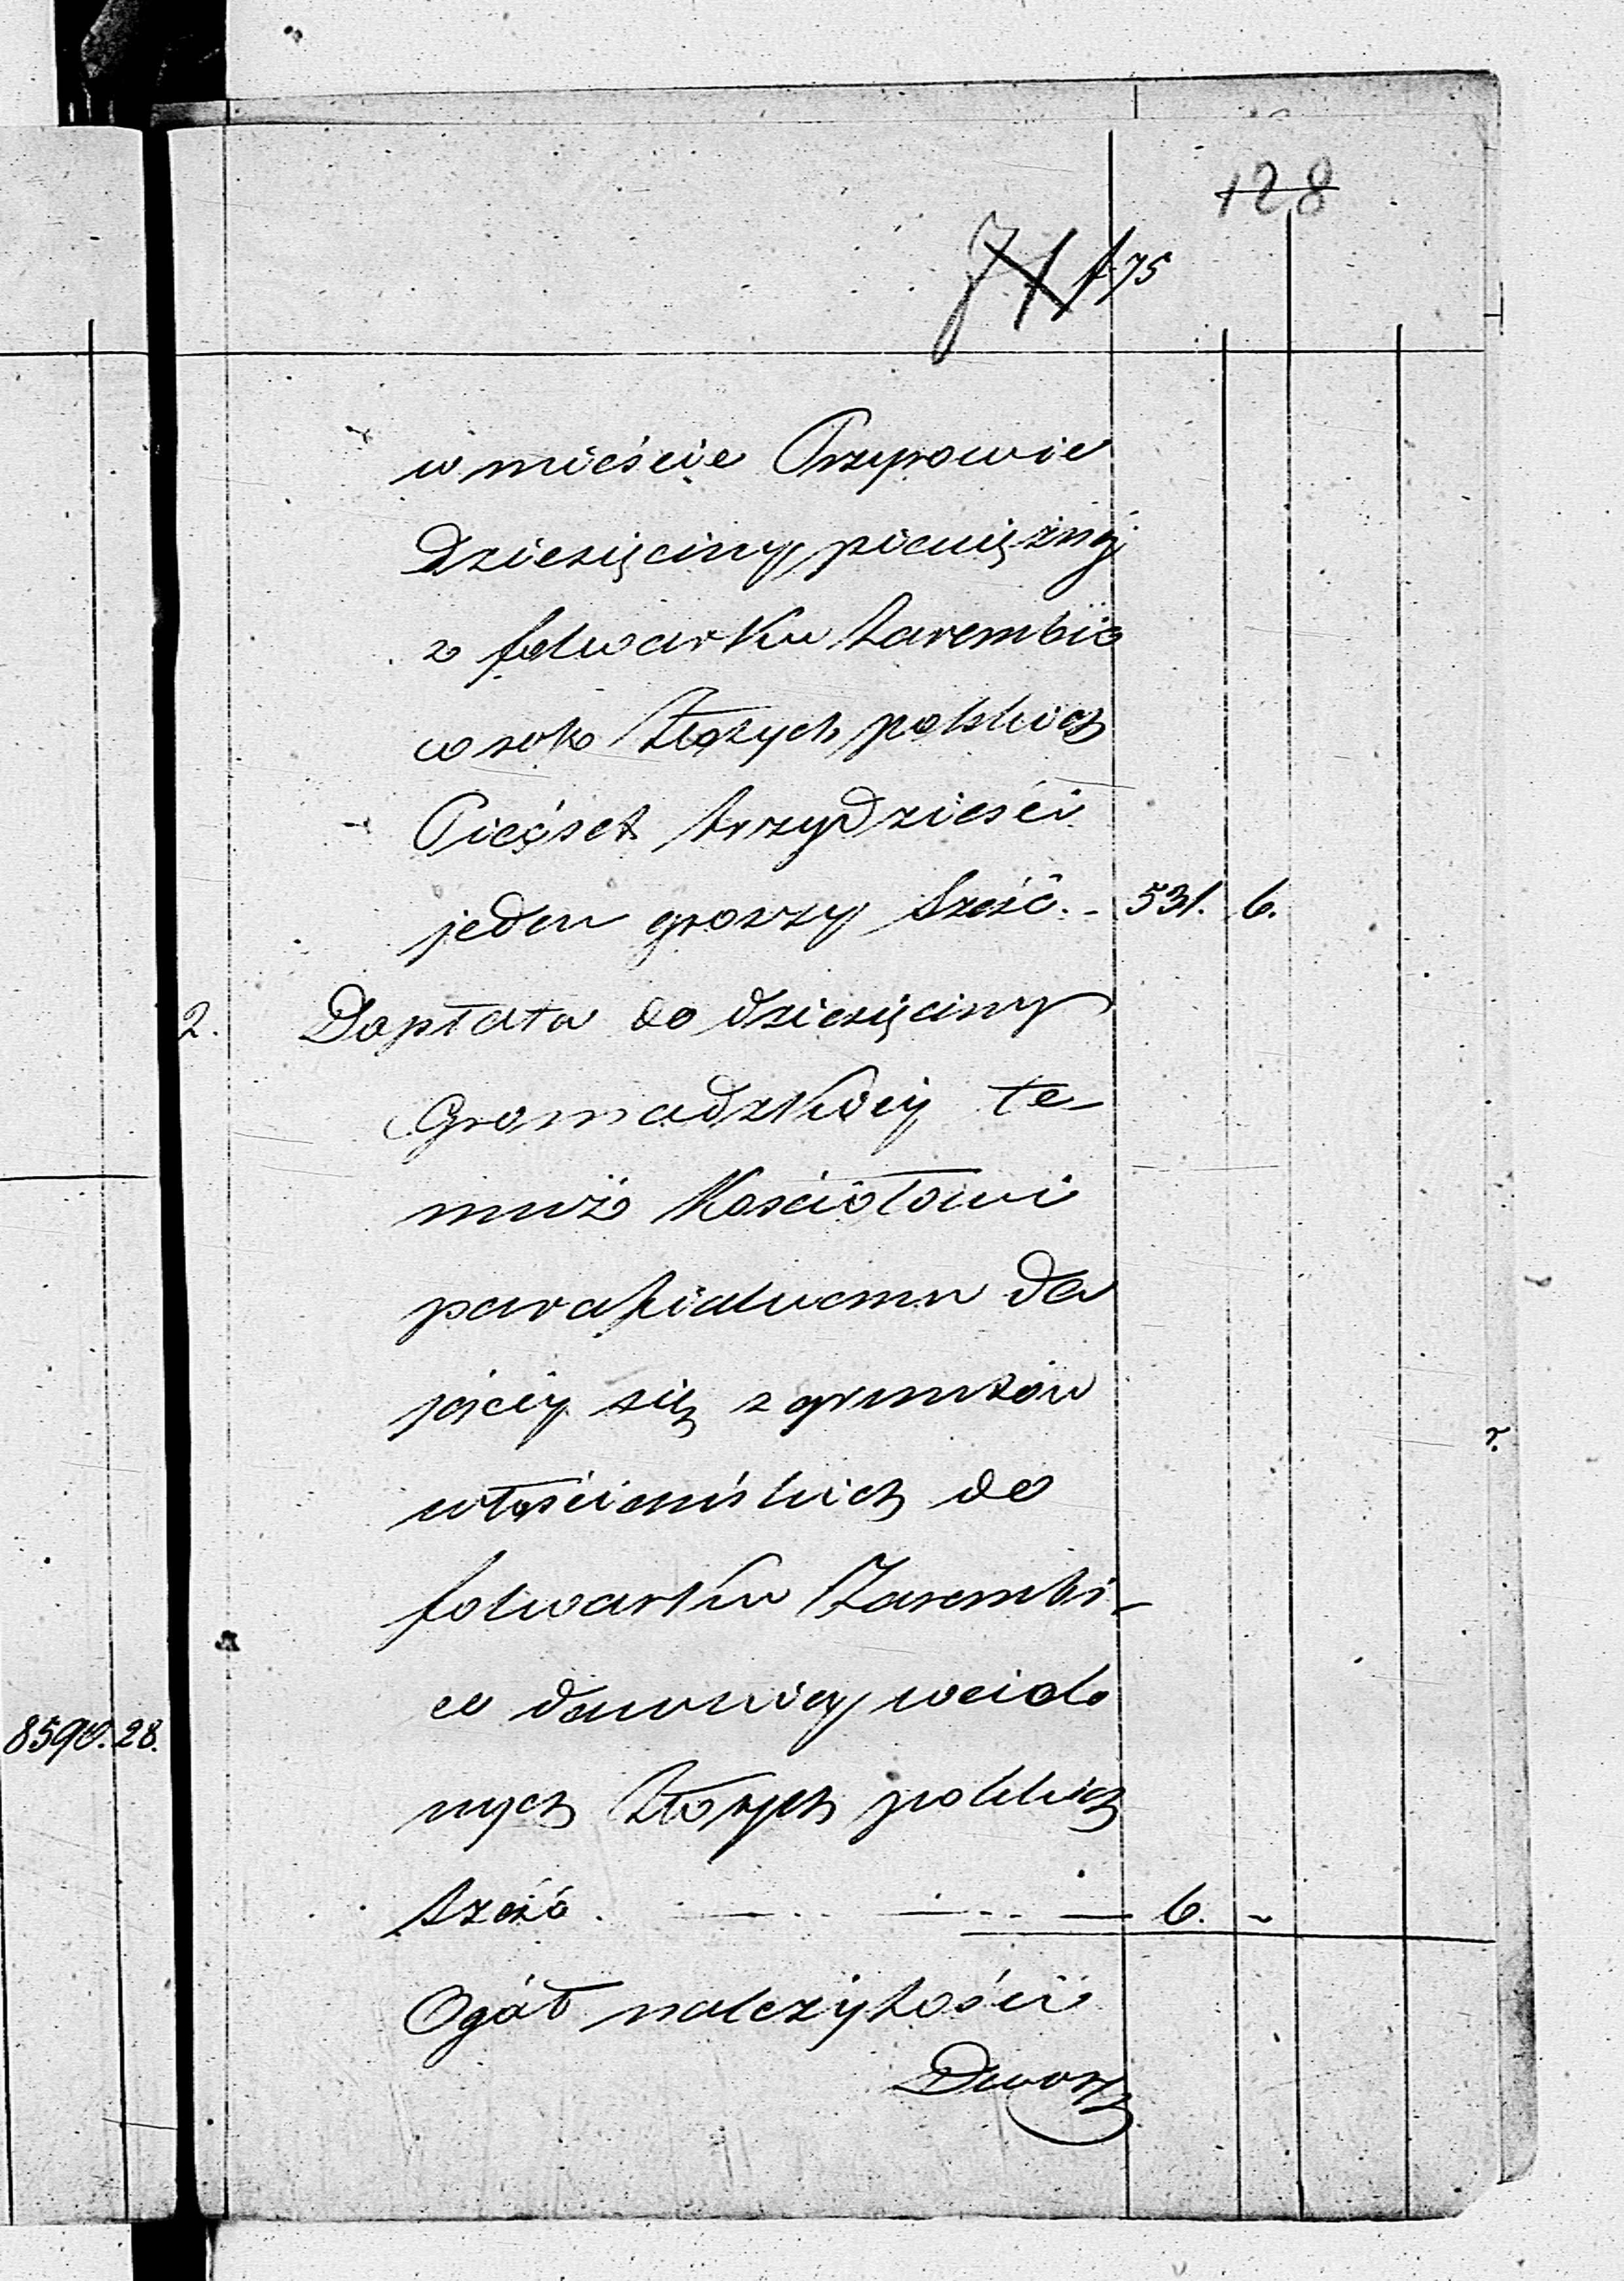 128
74 f 75
w mieście Przyrowie
Dziesięciny pieniężnéj
z folwarku Zarembic
w rok Złotych polskich
Pięćset trzydzieści
jeden groszy Sześć. - 531. 6.
2. Dopłata do dziesięciny
Gromadzkiéy te-
muż Kościołowi
parafialnemu da
jącéy się z gruntów
włościańskich do
folwarku Zarembi-
c dawniéy wcielo
nych Złotych polskich
sześć. 6. -
8590. 28.
Ogół należytości
Dwor